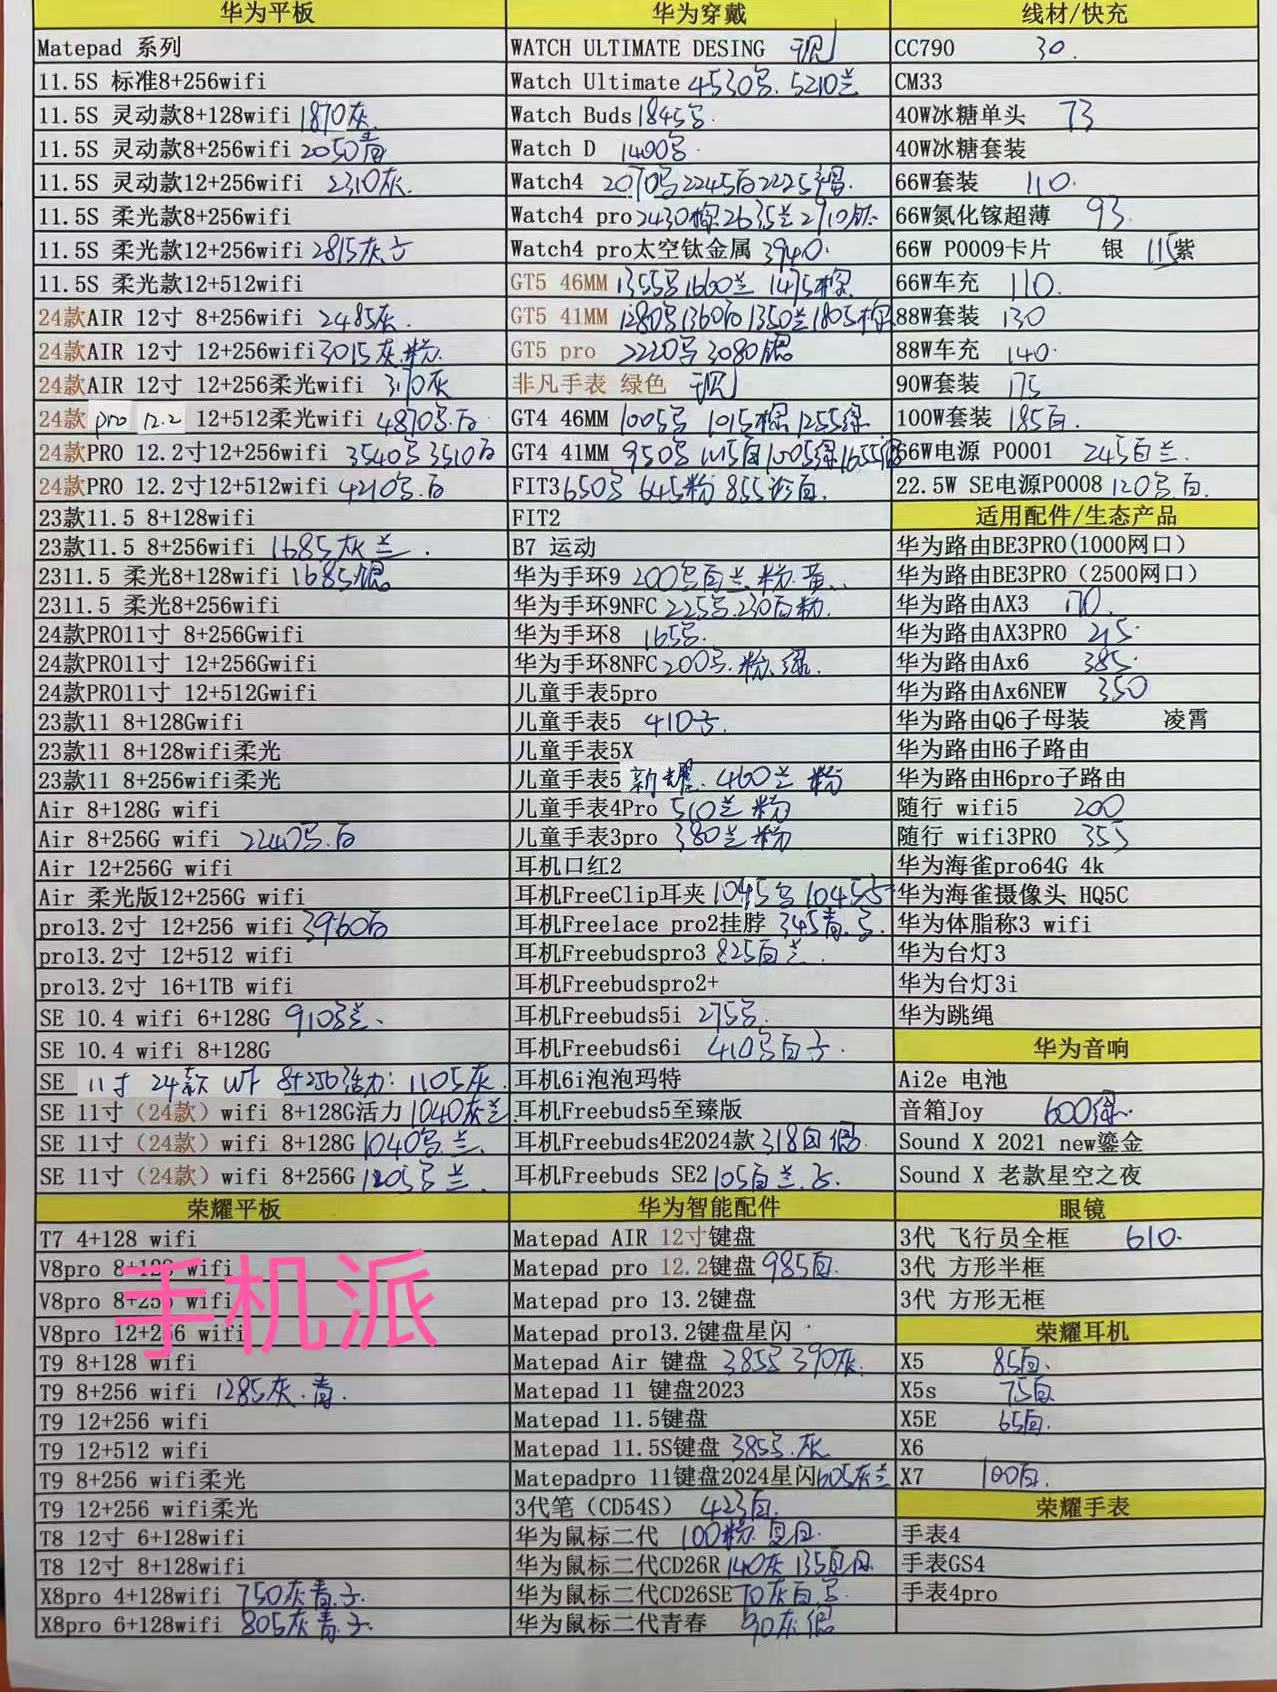 华为平板
Matepad 系列
11.5S 标准8+256wifi
11.5S 灵动款8+128wifi 1870灰
11.5S 灵动款8+256wifi 2050青
11.5S 灵动款12+256wifi 2310灰.
11.5S 柔光款8+256wifi
11.5S 柔光款12+256wifi 2815灰
11.5S 柔光款12+512wifi
24款AIR 12寸 8+256wifi 2485灰.
24款AIR 12寸 12+256wifi 3015灰.粉.
24款AIR 12寸 12+256柔光wifi 灰
24款 pro 12.2 12+512柔光wifi 4870 白
24款PRO 12.2寸12+256wifi 3540 3510白
24款PRO 12.2寸12+512wifi 4210 白
23款11.5 8+128wifi
23款11.5 8+256wifi 1685灰兰.
2311.5 柔光8+128wifi 1685
2311.5 柔光8+256wifi
24款PRO11寸 8+256Gwifi
24款PRO11寸 12+256Gwifi
24款PRO11寸 12+512Gwifi
23款11 8+128Gwifi
23款11 8+128wifi柔光
23款11 8+256wifi柔光
Air 8+128G wifi
Air 8+256G wifi 2240 白
Air 12+256G wifi
Air 柔光版12+256G wifi
pro13.2寸 12+256 wifi 3960白
pro13.2寸 12+512 wifi
pro13.2寸 16+1TB wifi
SE 10.4 wifi 6+128G 910 兰
SE 10.4 wifi 8+128G
SE 11寸 24款 8+256活力: 1105灰.
SE 11寸（24款）wifi 8+128G活力 1040灰兰
SE 11寸（24款）wifi 8+128G 1040 兰.
SE 11寸（24款）wifi 8+256G 1205 兰.
荣耀平板
T7 4+128 wifi
V8pro 8+128 wifi
V8pro 8+256 wifi
V8pro 12+256 wifi
T9 8+128 wifi
T9 8+256 wifi 1285灰.青.
T9 12+256 wifi
T9 12+512 wifi
T9 8+256 wifi柔光
T9 12+256 wifi柔光
T8 12寸 6+128wifi
T8 12寸 8+128wifi
X8pro 4+128wifi 750灰青
X8pro 6+128wifi 805灰青
手机派
华为穿戴
WATCH ULTIMATE DESING 现
Watch Ultimate 4530 5210兰
Watch Buds 1845
Watch D 1400
Watch4 2070 2245白 2225
Watch4 pro 2430棕 2635兰 2910钛
Watch4 pro太空钛金属 3940.
GT5 46MM 1355 1600兰 1475棕
GT5 41MM 1280 1360白 1350兰 1805棕
GT5 pro 2220 3080
非凡手表 绿色 现
GT4 46MM 1005 1015棕 1255绿
GT4 41MM 950 1115白 1005绿 1655
FIT3 650 645粉 855
FIT2
B7 运动
华为手环9 200 白兰.粉.黄.
华为手环9NFC 225 230白粉.
华为手环8 165
华为手环8NFC 200 粉.绿.
儿童手表5pro
儿童手表5 410
儿童手表5X
儿童手表5 新耀. 460兰 粉
儿童手表4Pro 510兰 粉
儿童手表3pro 380兰 粉
耳机口红2
耳机FreeClip耳夹 1045 1045
耳机Freelace pro2挂脖 345青
耳机Freebudspro3 825白兰.
耳机Freebudspro2+
耳机Freebuds5i 275
耳机Freebuds6i 410 白
耳机6i泡泡玛特
耳机Freebuds5至臻版
耳机Freebuds4E2024款 318白
耳机Freebuds SE2 105白兰.
华为智能配件
Matepad AIR 12寸键盘
Matepad pro 12.2键盘 985白.
Matepad pro 13.2键盘
Matepad pro13.2键盘星闪
Matepad Air 键盘 385 390灰.
Matepad 11 键盘2023
Matepad 11.5键盘
Matepad 11.5S键盘 385 灰
Matepadpro 11键盘2024星闪 605灰兰
3代笔（CD54S） 423白.
华为鼠标二代 100粉.
华为鼠标二代CD26R 140灰 135
华为鼠标二代CD26SE 70灰白
华为鼠标二代青春 90灰
线材/快充
CC790 30.
CM33
40W冰糖单头 73
40W冰糖套装
66W套装 110.
66W氮化镓超薄 93.
66W P0009卡片 银 115紫
66W车充 110.
88W套装 130
88W车充 140.
90W套装 175
100W套装 185白.
66W电源 P0001 245白兰.
22.5W SE电源P0008 120 白.
适用配件/生态产品
华为路由BE3PRO(1000网口)
华为路由BE3PRO（2500网口）
华为路由AX3 170.
华为路由AX3PRO 215.
华为路由Ax6 385.
华为路由Ax6NEW 350
华为路由Q6子母装 凌霄
华为路由H6子路由
华为路由H6pro子路由
随行 wifi5 200
随行 wifi3PRO 355
华为海雀pro64G 4k
华为海雀摄像头 HQ5C
华为体脂称3 wifi
华为台灯3
华为台灯3i
华为跳绳
华为音响
Ai2e 电池
音箱Joy 600绿.
Sound X 2021 new鎏金
Sound X 老款星空之夜
眼镜
3代 飞行员全框 610.
3代 方形半框
3代 方形无框
荣耀耳机
X5 85白.
X5s 75白
X5E 65白.
X6
X7 100白.
荣耀手表
手表4
手表GS4
手表4pro